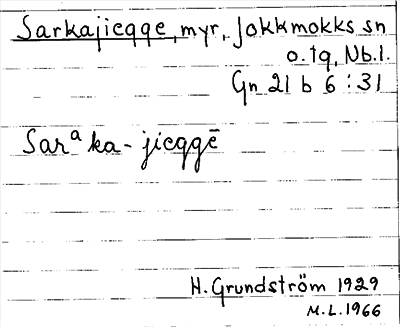 Sarkajieqqe, myr, Jokkmokks sn
o. tq, Nb.l.
Gn 21 b 6 : 31
Sarᵃka-jieqqē
H. Grundström 1929
M.L. 1966